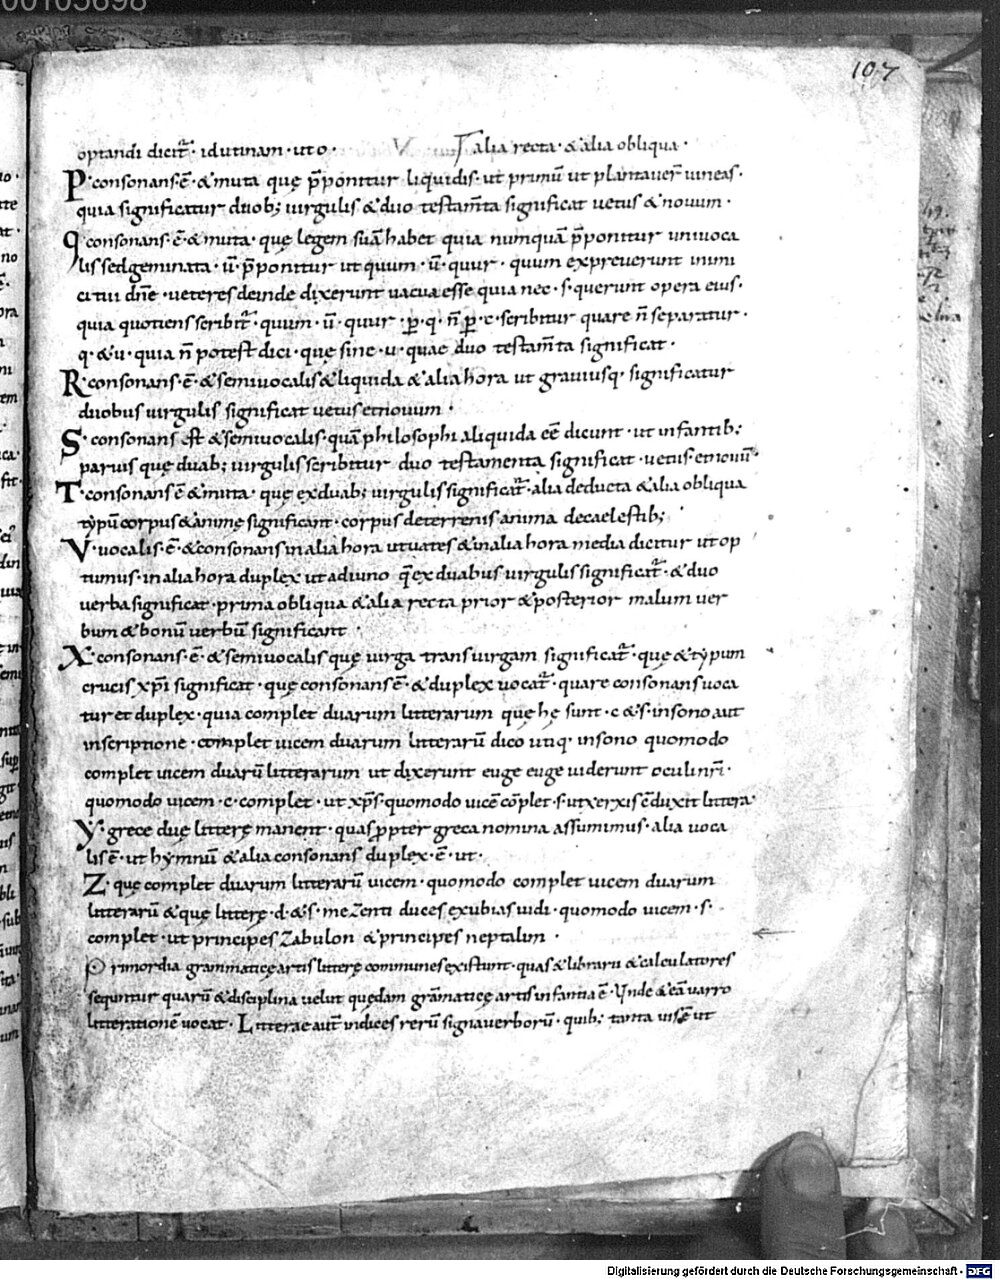 00105698
107
optandi dicit᷑· id utinam · ut o · alia recta · & alia obliqua ·
P · consonans · ē · & muta quę p̄ponitur liquidis · ut primū ut plantauer̄ uineas ·
quia significatur duob; uirgulis & duo testam̄ta significat uetus & nouum ·
q consonans · ē · & muta · quę legem suā habet quia numquā p̄ponitur uni uoca
lis sed geminata · ū · p̄ponitur ut quum · ū · quur · quum
citui dn̄e · ueteres deinde dixerunt uacua esse quia nec · s · querunt opera eius ·
quia quotiens scribit᷑ · quum · ū · quur · ꝑ · q · n̄ ꝑ · c · scribitur quare n̄ separatur ·
q · & u · quia n̄ potest dici · quę sine · u · quae duo testam̄ta significat ·
R · consonans · ē · & semiuocalis & liquida & alia hora ut grauiusq · significatur
duobus uirgulis significat uetus et nouum ·
S · consonans est & semiuocalis · quā philosophi aliquida eē dicunt · ut infantib;
paruis quę duab; uirgulis scribitur duo testamenta significat · uetus et nouū ·
T · consonans ē & muta · quę ex duab; uirgulis significat᷑ · alia deducta & alia obliqua
typū corpus & animę significant · corpus de terrenis anima de caelestib;
V · uocalis · ē · & consonans in alia hora ut uates & in alia hora media dicitur ut op
tumus · in alia hora duplex ut adiuno q̄ ex duabus uirgulis significat᷑ · & duo
uerba significat · prima obliqua & alia recta prior & posterior malum uer
bum & bonū uerbū significant
X · consonans · ē · & semiuocalis quę uirga trans uirgam significat᷑ · quę & typum
crucis xp̄i significat · quę consonans ē · & duplex uocat᷑ · quare consonans uoca
tur et duplex · quia complet duarum litterarum quę hę sunt · c & s · in sono aut
in scriptione · complet uicem duarum litterarū dico utiq · in sono quomodo
complet uicem duarū litterarum ut dixerunt euge euge uiderunt oculi nr̄i ·
quomodo uicem · c · complet · ut xp̄s · quomodo uicē cōplet · s · ut xerxis ēduxit littera
Y · grece duę litterę manent · quas ꝓpter greca nomina assumimus · alia uoca
lis ē · ut hymnū & alia consonans duplex · ē · ut ·
Z · quę complet duarum litterarū uicem · quomodo complet uicem duarum
litterarū & quę litterę · d · & s · mezenti duces exubias uidi · quomodo uicem · s ·
complet · ut principes Zabulon & principes neptalim ·
Primordia grammaticę artis litterę communes existunt · quas & librarii & calculatores
sequntur quarū & disciplina uelut quędam grāmaticę artis infantia ē · Unde & eā uarro
litterationē uocat · Litterae aut̄ indices rerū signa uerborū · quib; tanta uis ē ut
Digitalisierung gefördert durch die Deutsche Forschungsgemeinschaft - DFG